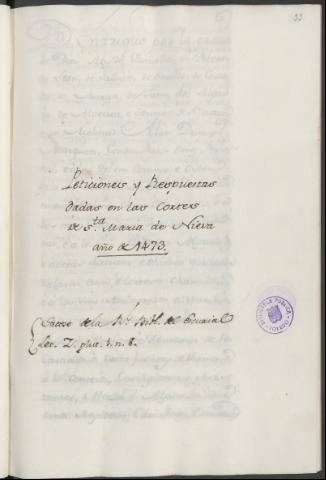 33
Peticiones y Respuestas
dadas en las Cortes
de S.ta Maria de Nieva
año de 1473.
de la Rl. Bibl. del Escurial
Let. Z. plut. 1. n. 8.
BIBLIOTECA PUBLICA
TOLEDO